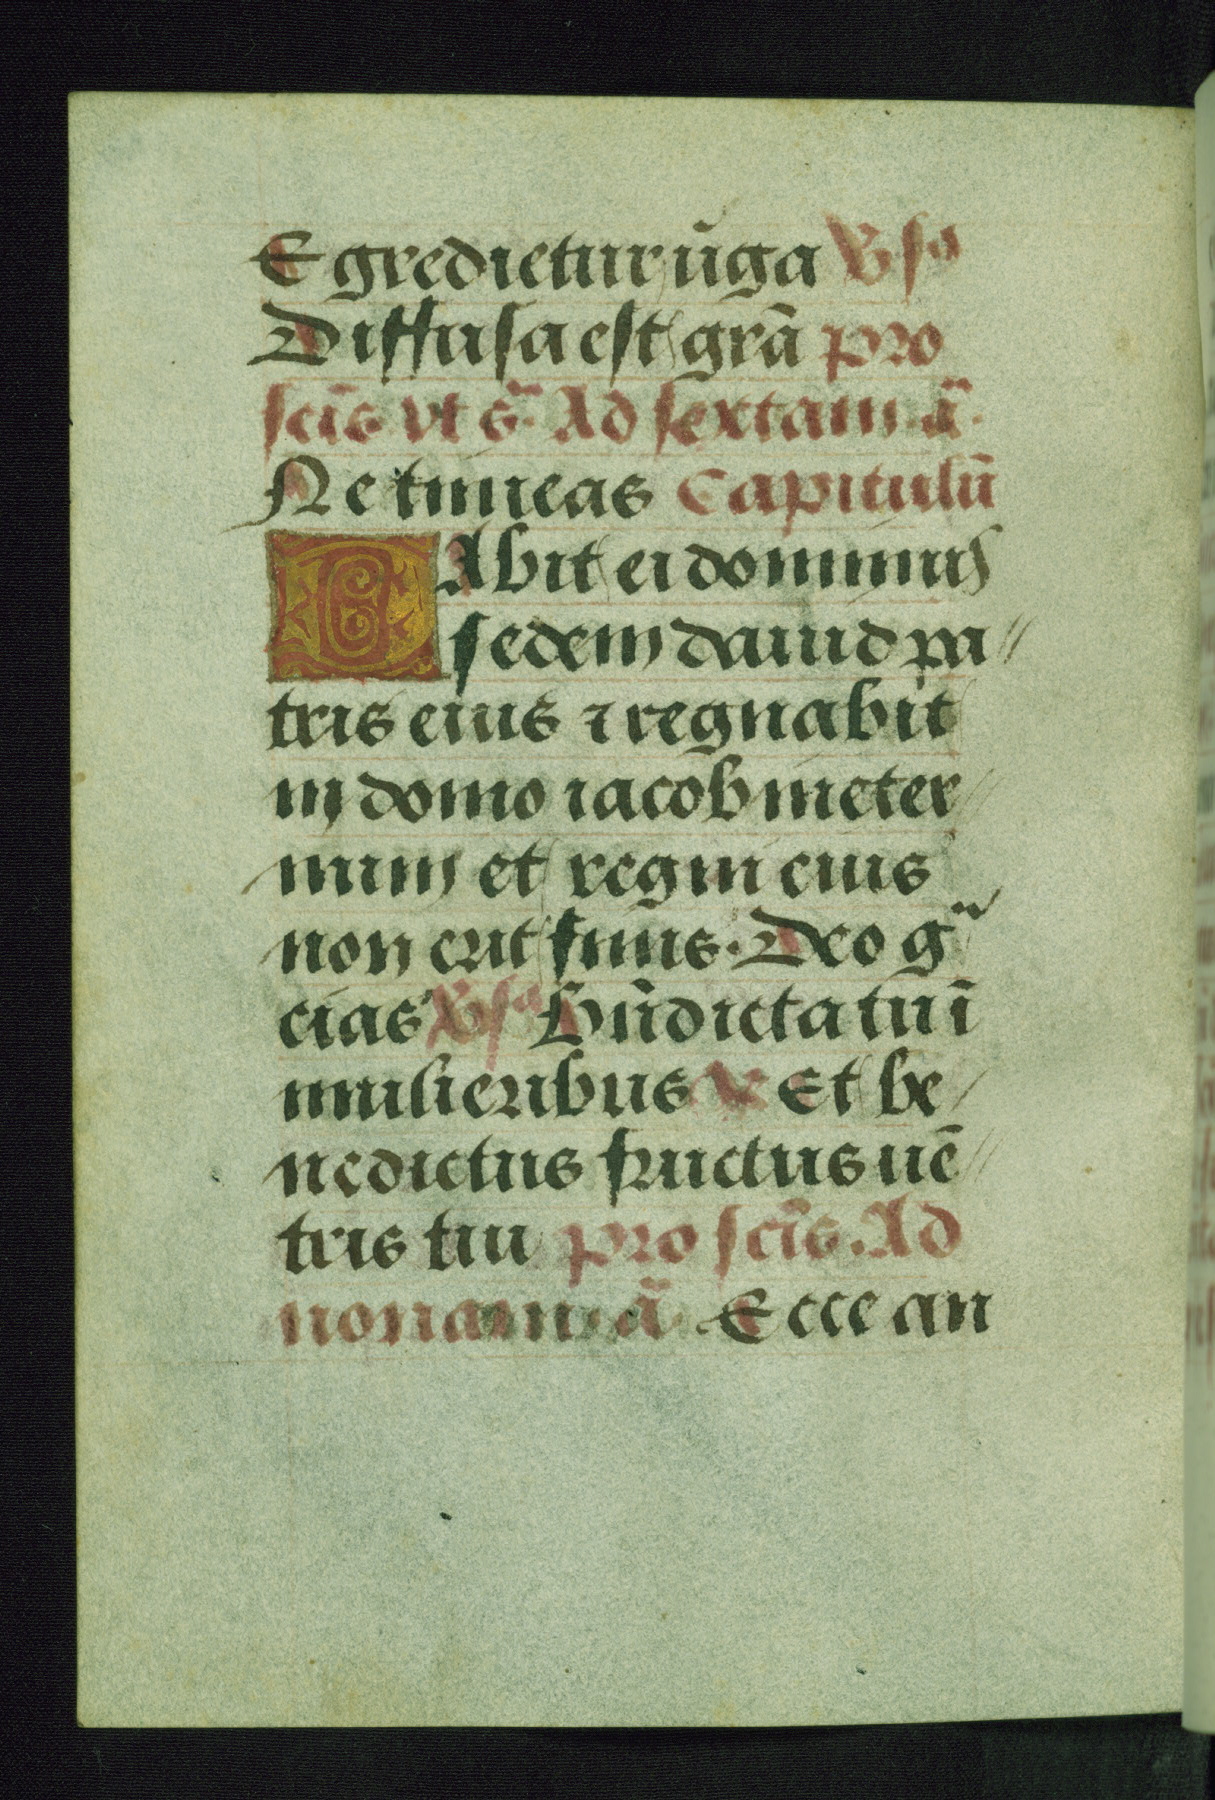 Egredietur ũga V̶sa
Diffusa est grã pro
scĩs vt sᵃ. Ad sextam. ã.
Ne timeas Capitulũ
DAbit ei dominus
sedem dauid pa //
tris eius ⁊ regnabit
in domo iacob ineter //
num et regni eius
non erit finis. Deo gᵃ
cias V̶sa Bñdicta tu ĩ
mulieribus ℟ Et be /
nedictus fructus uẽ //
tris tui pro scĩs. Ad
nonam. ã. Ecce an